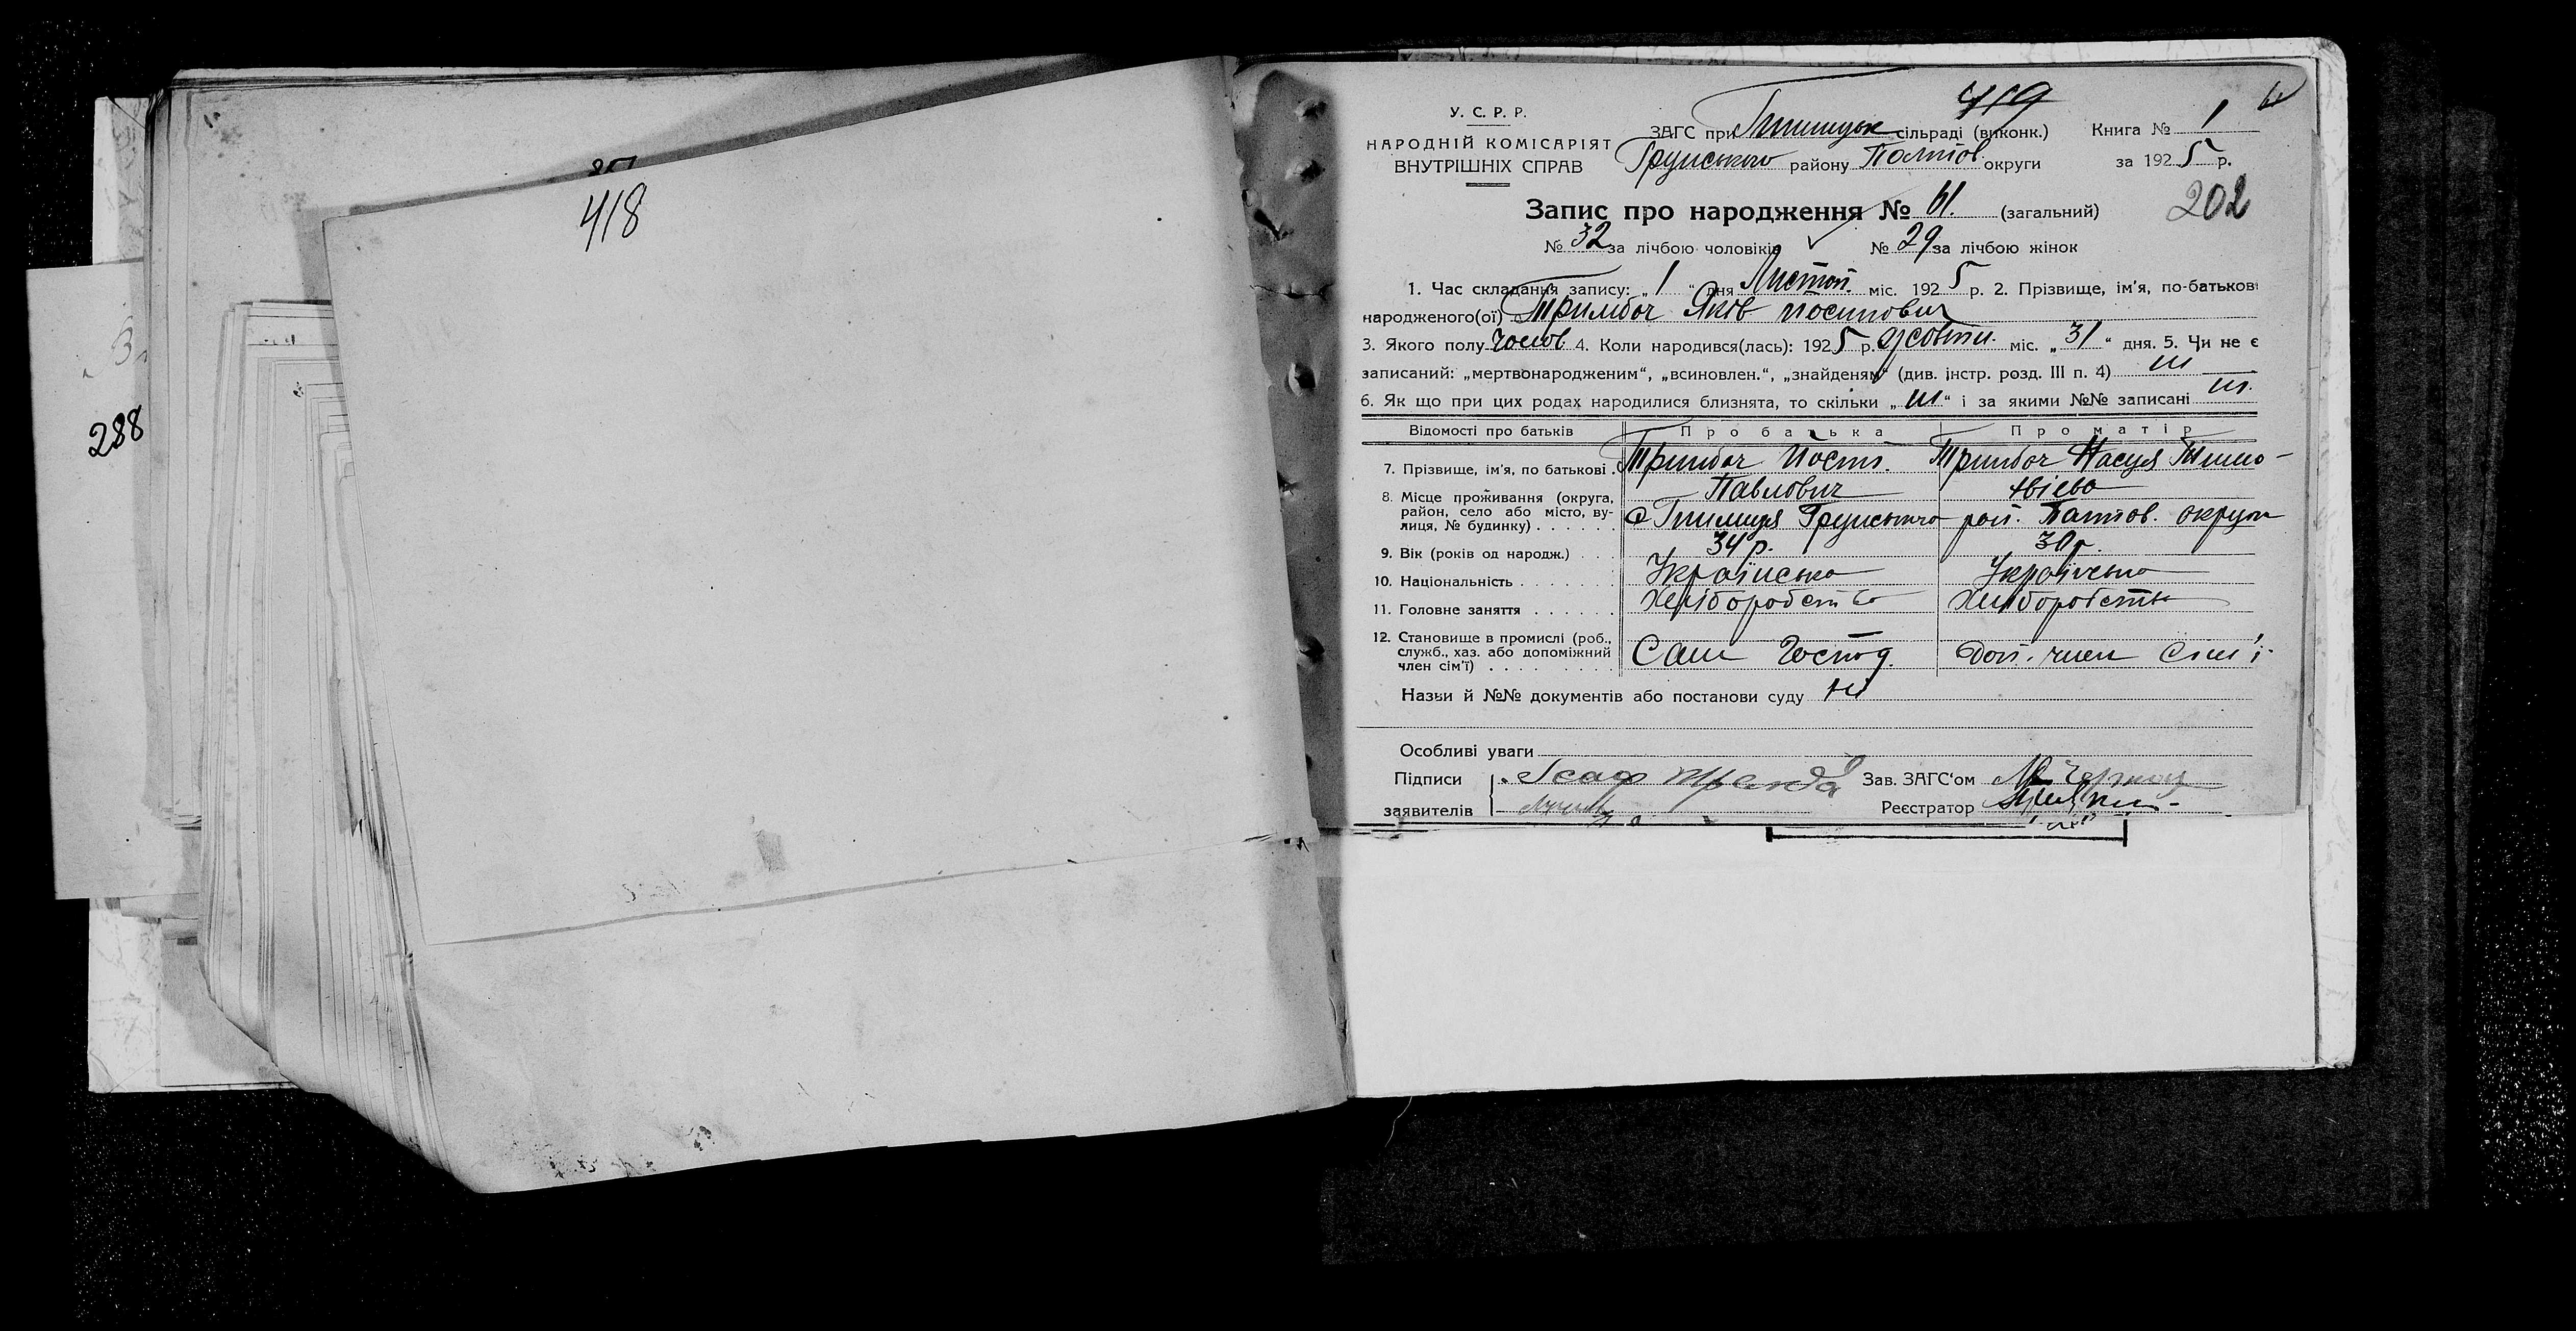 418
288
419
У. С. Р. Р.
НАРОДНІЙ КОМІСАРІЯТ
ВНУТРІШНІХ СПРАВ
ЗАГС при сільраді (виконк.) Книга № 1
Грунського району Полтов. округи за 1925 р.
Запис про народження № 61. (загальний) 202
№ 32 за лічбою чоловіків № 29 за лічбою жінок
1. Час складання запису: „1“ дня Листоп. міс. 1925 р. 2. Прізвище, ім'я, по-батькові
народженого(ої) Тримбач Яків Йосипович
3. Якого полу чолов. 4. Коли народився(лась): 1925 р. жовтн. міс. „31“ дня. 5. Чи не є
записаний: „мертвонародженим“, „всиновлен.“, „знайденям“ (див. інстр. розд. III п. 4) ні
6. Як що при цих родах народилися близнята, то скільки „ні“ і за якими №№ записані ні.
Відомості про батьків Про батька Про матір
7. Прізвище, ім'я, по батькові Тримбач Йосип. Тримбач Настя Тимо-
Павлович фієва
8. Місце проживання (округа,
район, село або місто, ву-
лиця, № будинку) Грунського рай. Полтов. округи
9. Вік (років од народж.) 34 р. 30 р.
10. Національність Українська Українська
11. Головне заняття Хліборобство Хліборобство
12. Становище в промислі (роб.,
служб., хаз. або допоміжний
член сім'ї) Сам Господ. Доп. член Сім'ї
Назви й №№ документів або постанови суду ні
Особливі уваги
Підписи Зав. ЗАГС'ом
заявителів Реєстратор